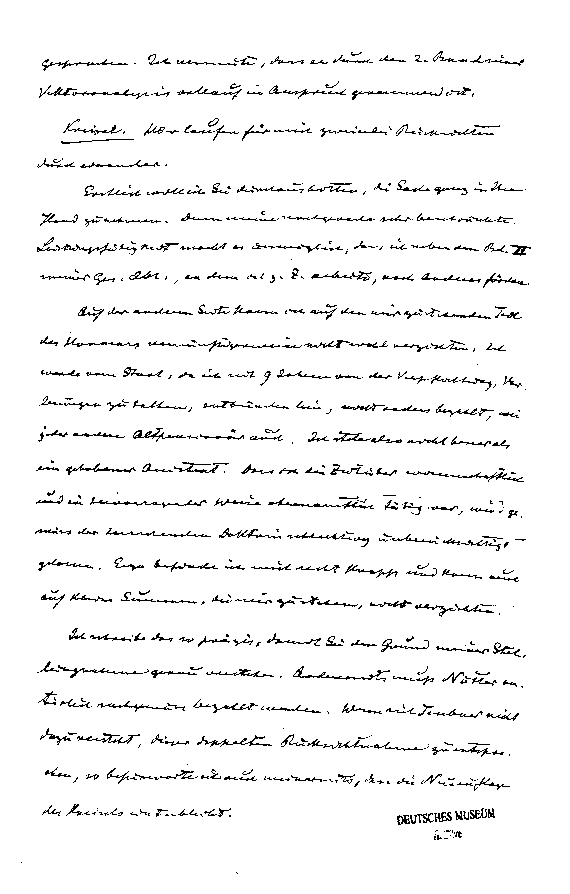 gesprochen. Ich vermute, dass er durch den 2. Band seiner
Vektoranalysis vollauf in Anspruch genommen ist.
Kreisel. Hier laufen für mich zweierlei Rücksichten
durch einander.
Erstlich wollte ich Sie bitten, die Sache ganz in Ihre
Hand zu nehmen. Denn meine nachgerade sehr beschränkte
Leistungsfähigkeit macht es unmöglich, dass ich neben dem Bd. II
meiner Ges. Abh., an dem ich z. Z. arbeite, noch Anderes fördere
Auf der anderen Seite kann ich auf den mir zustehenden Teil
des Honorars vernünftigerweise nicht wohl verzichten. Ich
werde vom Staat, da ich mit 9 Jahren von der Verpflichtung, Vor-
lesungen zu halten, entbunden bin, nicht anders bezahlt, wie
jeder andere Altpensionär auch. Ich stehe also nicht besser als
ein gehobener Assistent. Dass ich die Zeit über wissenschaftlich
und in hervorragender Weise ehrenamtlich tätig war, wird ge-
mäss der herrschenden Doktrin unberücksichtigt
gelassen. Ergo befinde ich mich recht knapp und kann auch
auf kleine Summen, die mir zustehen, nicht verzichten.
Ich schreibe das so präzis, damit Sie den Grund meiner Stel-
lungnahme genau verstehen. Andererseits muss Nöther na-
türlich sachgemäss bezahlt werden. Wenn sich Teubner nicht
dazu versteht, dieser doppelten Rücksichtnahme zu entspre-
chen, so befürworte ich auch meinerseits, dass die Neuauflage
des Kreisels unterbleibt.
DEUTSCHES MUSEUM